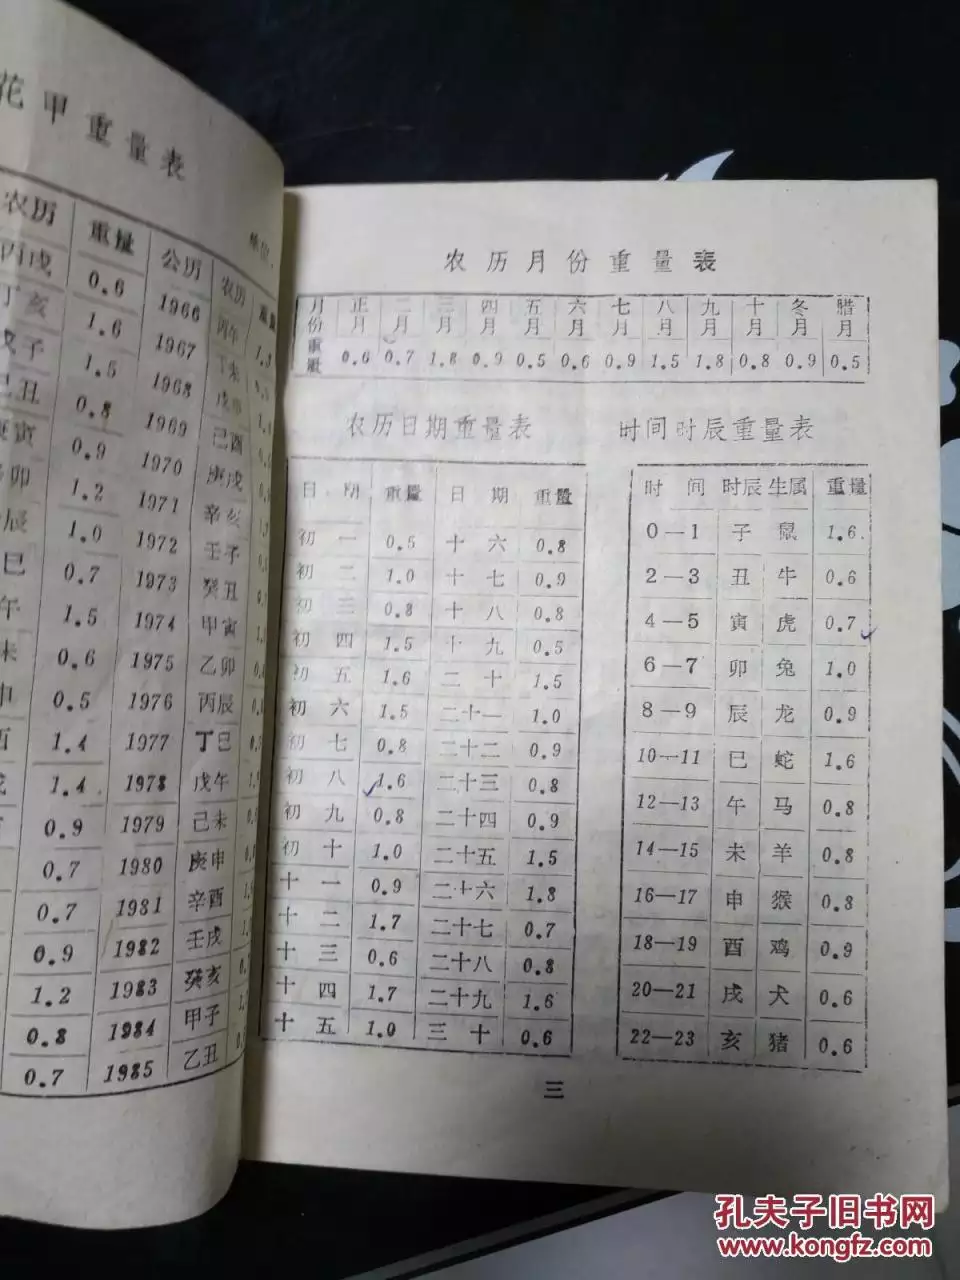 花甲重量表
农历 重量 公历 农历 重量
丙戌 0.6 1966 丙午 1.3
丁亥 1.6 1967 丁未
戊子 1.5 1968
己丑 0.8 1969 己酉
庚寅 0.9 1970 庚戌
卯 1.2 1971 辛亥
辰 1.0 1972 壬子
巳 0.7 1973 癸丑
午 1.5 1974 甲寅
未 0.6 1975 乙卯
申 0.5 1976 丙辰
酉 1.4 1977 丁巳
戌 1.4 1978 戊午
0.9 1979 己未
0.7 1980 庚申
0.7 1981 辛酉
0.9 1982 壬戌
1.2 1983 癸亥
0.8 1984 甲子
0.7 1985 乙丑
农历月份重量表
月份 正月 二月 三月 四月 五月 六月 七月 八月 九月 十月 冬月 腊月
重量 0.6 0.7 1.8 0.9 0.5 0.6 0.9 1.5 1.8 0.8 0.9 0.5
农历日期重量表
日期 重量 日期 重量
初一 0.5 十六 0.8
初二 1.0 十七 0.9
初三 0.8 十八 0.8
初四 1.5 十九 0.5
初五 1.6 二十 1.5
初六 1.5 二十一 1.0
初七 0.8 二十二 0.9
初八 1.6 二十三 0.8
初九 0.8 二十四 0.9
初十 1.0 二十五 1.5
十一 0.9 二十六 1.8
十二 1.7 二十七 0.7
十三 0.6 二十八 0.8
十四 1.7 二十九 1.6
十五 1.0 三十 0.6
时间时辰重量表
时间 时辰 生属 重量
0—1 子 鼠 1.6
2—3 丑 牛 0.6
4—5 寅 虎 0.7
6—7 卯 兔 1.0
8—9 辰 龙 0.9
10—11 巳 蛇 1.6
12—13 午 马 0.8
14—15 未 羊 0.8
16—17 申 猴 0.8
18—19 酉 鸡 0.9
20—21 戌 犬 0.6
22—23 亥 猪 0.6
三
孔夫子旧书网
www.kongfz.com